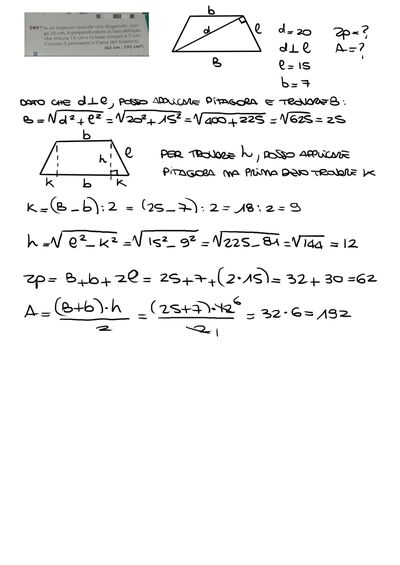 289* In un trapezio isoscele una diagonale, lun-
ga 20 cm, è perpendicolare al lato obliquo
che misura 15 cm e la base minore è 7 cm.
Calcola il perimetro e l'area del trapezio.
[62 cm ; 192 cm²]
b
d
l
B
d=20
d⊥l
l=15
b=7
2p=?
A=?
DATO CHE d⊥l, POSSO APPLICARE PITAGORA E TROVARE B:
B=√d²+l²=√20²+15²=√400+225=√625=25
b
h
l
K
b
K
PER TROVARE h, POSSO APPLICARE
PITAGORA MA PRIMA DEVO TROVARE K
K=(B-b):2=(25-7):2=18:2=9
h=√l²-K²=√15²-9²=√225-81=√144=12
2p=B+b+2l=25+7+(2·15)=32+30=62
A=(B+b)·h/2=(25+7)·12⁶/2₁=32·6=192